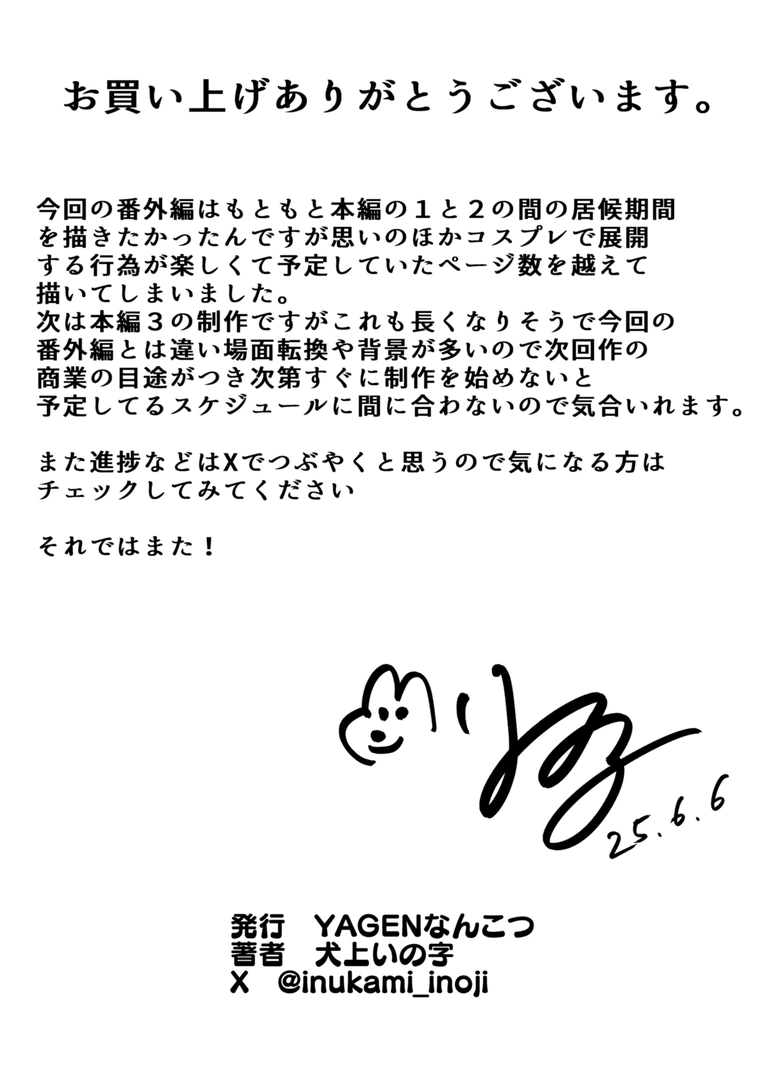 お買い上げありがとうございます。
今回の番外編はもともと本編の１と２の間の居候期間
を描きたかったんですが思いのほかコスプレで展開
する行為が楽しくて予定していたページ数を越えて
描いてしまいました。
次は本編３の制作ですがこれも長くなりそうで今回の
番外編とは違い場面転換や背景が多いので次回作の
商業の目途がつき次第すぐに制作を始めないと
予定してるスケジュールに間に合わないので気合いれます。
また進捗などはXでつぶやくと思うので気になる方は
チェックしてみてください
それではまた！
25.6.6
発行　YAGENなんこつ
著者　犬上いの字
X　@inukami_inoji